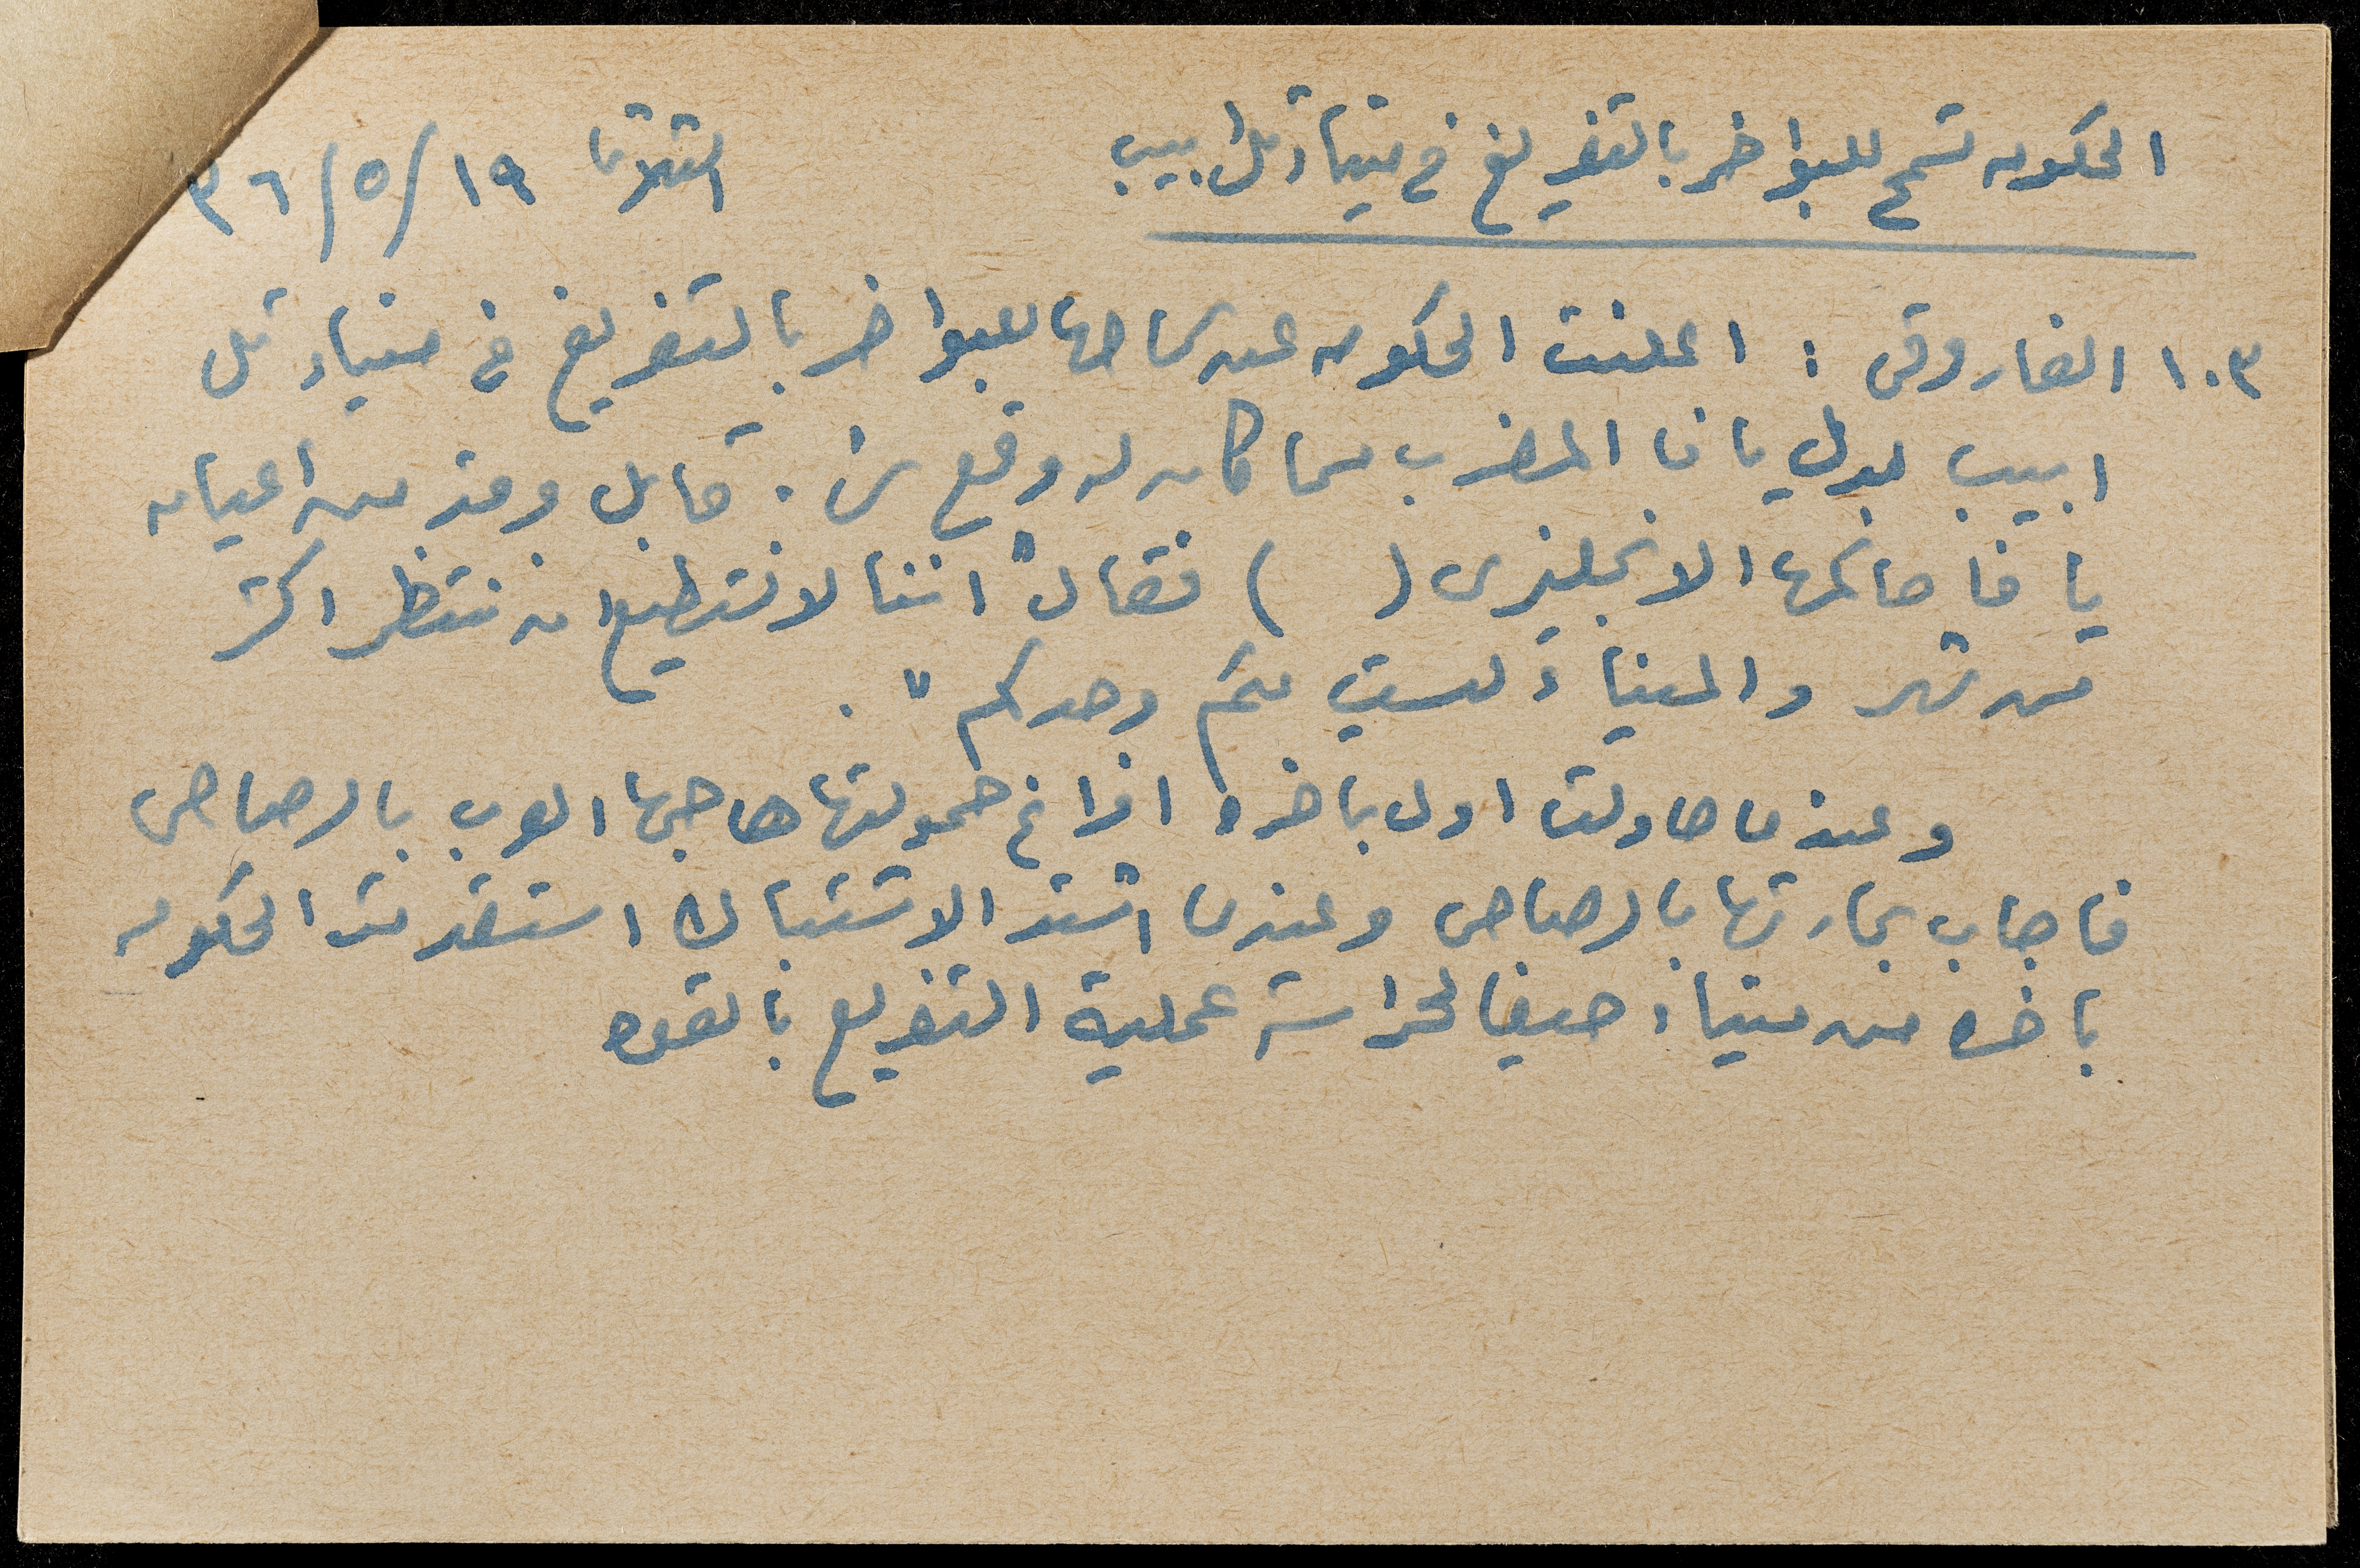 الحكومه تسمح للبواخر بالتفريغ في ميناء تل ابيب
الثلاثا ١٩/٥/٣٦
١٠٣ الفاروقي : اعلنت الحكومه عن سماحها للبواخر بالتفريغ في ميناء تل
ابيب بدل يافا المضرب مما كان له وقع سئ . قابل وفد من اعيان
يافا حاكمها الانجليزي ( ) فقال " اننا لا نستطيع ان ننتظر اكثر
من شهر والميناء ليست لكم وحدكم " .
وعندما حاولت اول باخره افراغ حمولتها هاجمها العرب بالرصاص
فاجاب بحارتها بالرصاص وعندما اشتد الاشتباك استقدمت الحكومه
باخره من ميناء حيفا لحراسة عملية التفريغ بالقوه